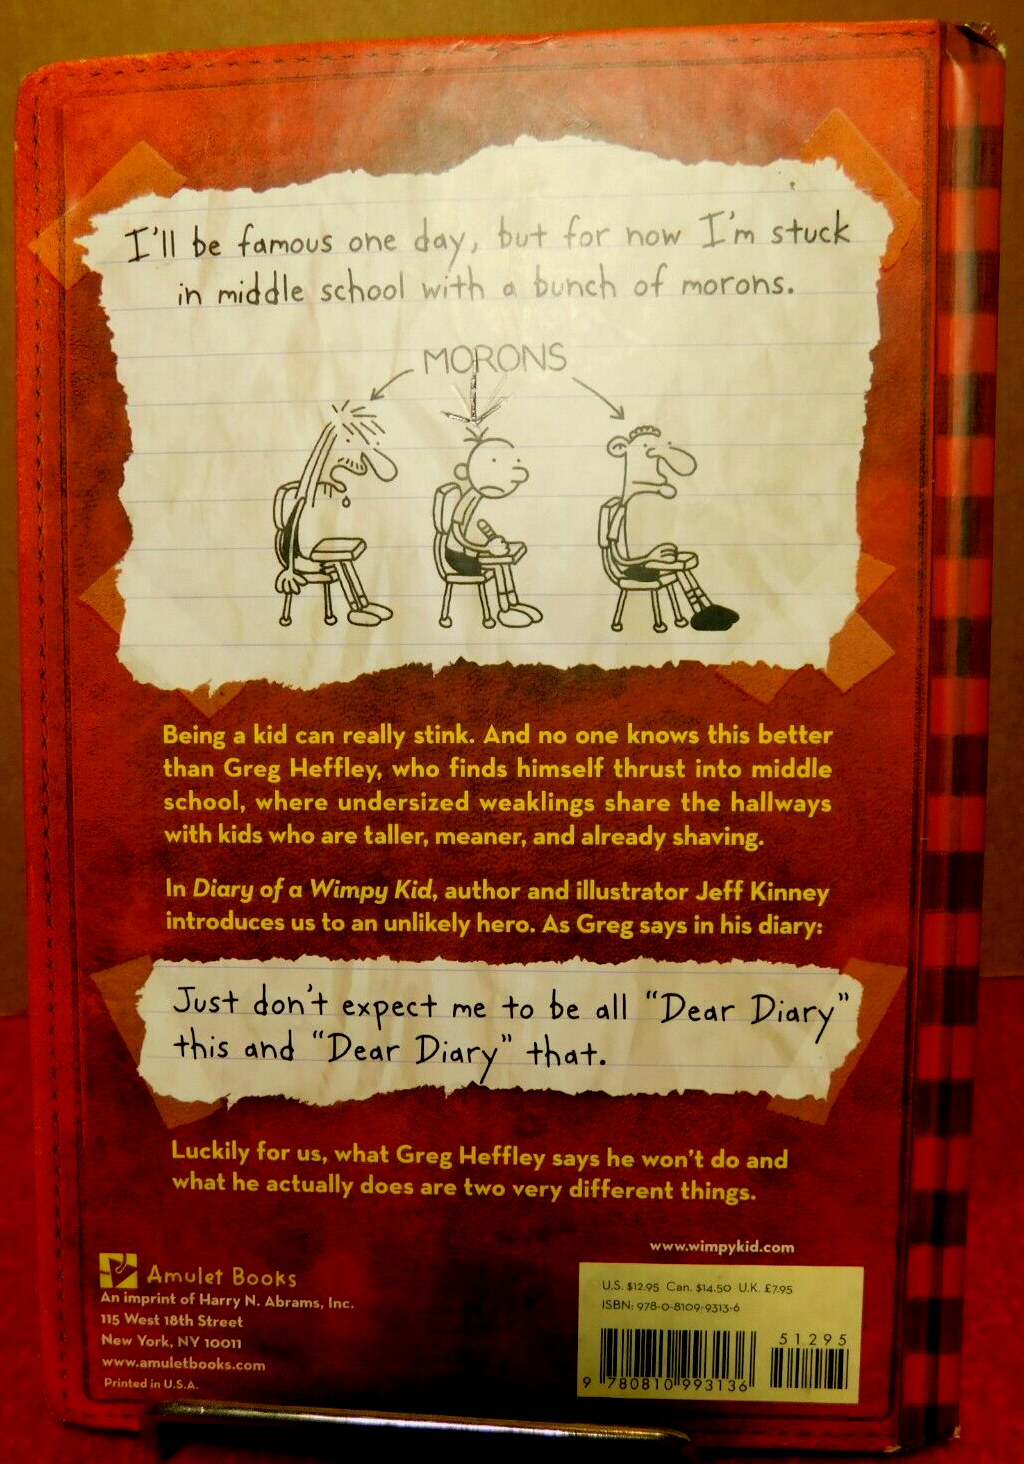 I'll be famous one day, but for now I'm stuck
in middle school with a bunch of morons.
MORONS
Being a kid can really stink. And no one knows this better
than Greg Heffley, who finds himself thrust into middle
school, where undersized weaklings share the hallways
with kids who are taller, meaner, and already shaving.
In Diary of a Wimpy Kid, author and illustrator Jeff Kinney
introduces us to an unlikely hero. As Greg says in his diary:
Just don't expect me to be all "Dear Diary"
this and "Dear Diary" that.
Luckily for us, what Greg Heffley says he won't do and
what he actually does are two very different things.
www.wimpykid.com
Amulet Books
An imprint of Harry N. Abrams, Inc.
115 West 18th Street
New York, NY 10011
www.amuletbooks.com
Printed in U.S.A.
U.S. $12.95 Can. $14.50 U.K. £7.95
ISBN: 978-0-8109-9313-6
51295
9 780810 993136